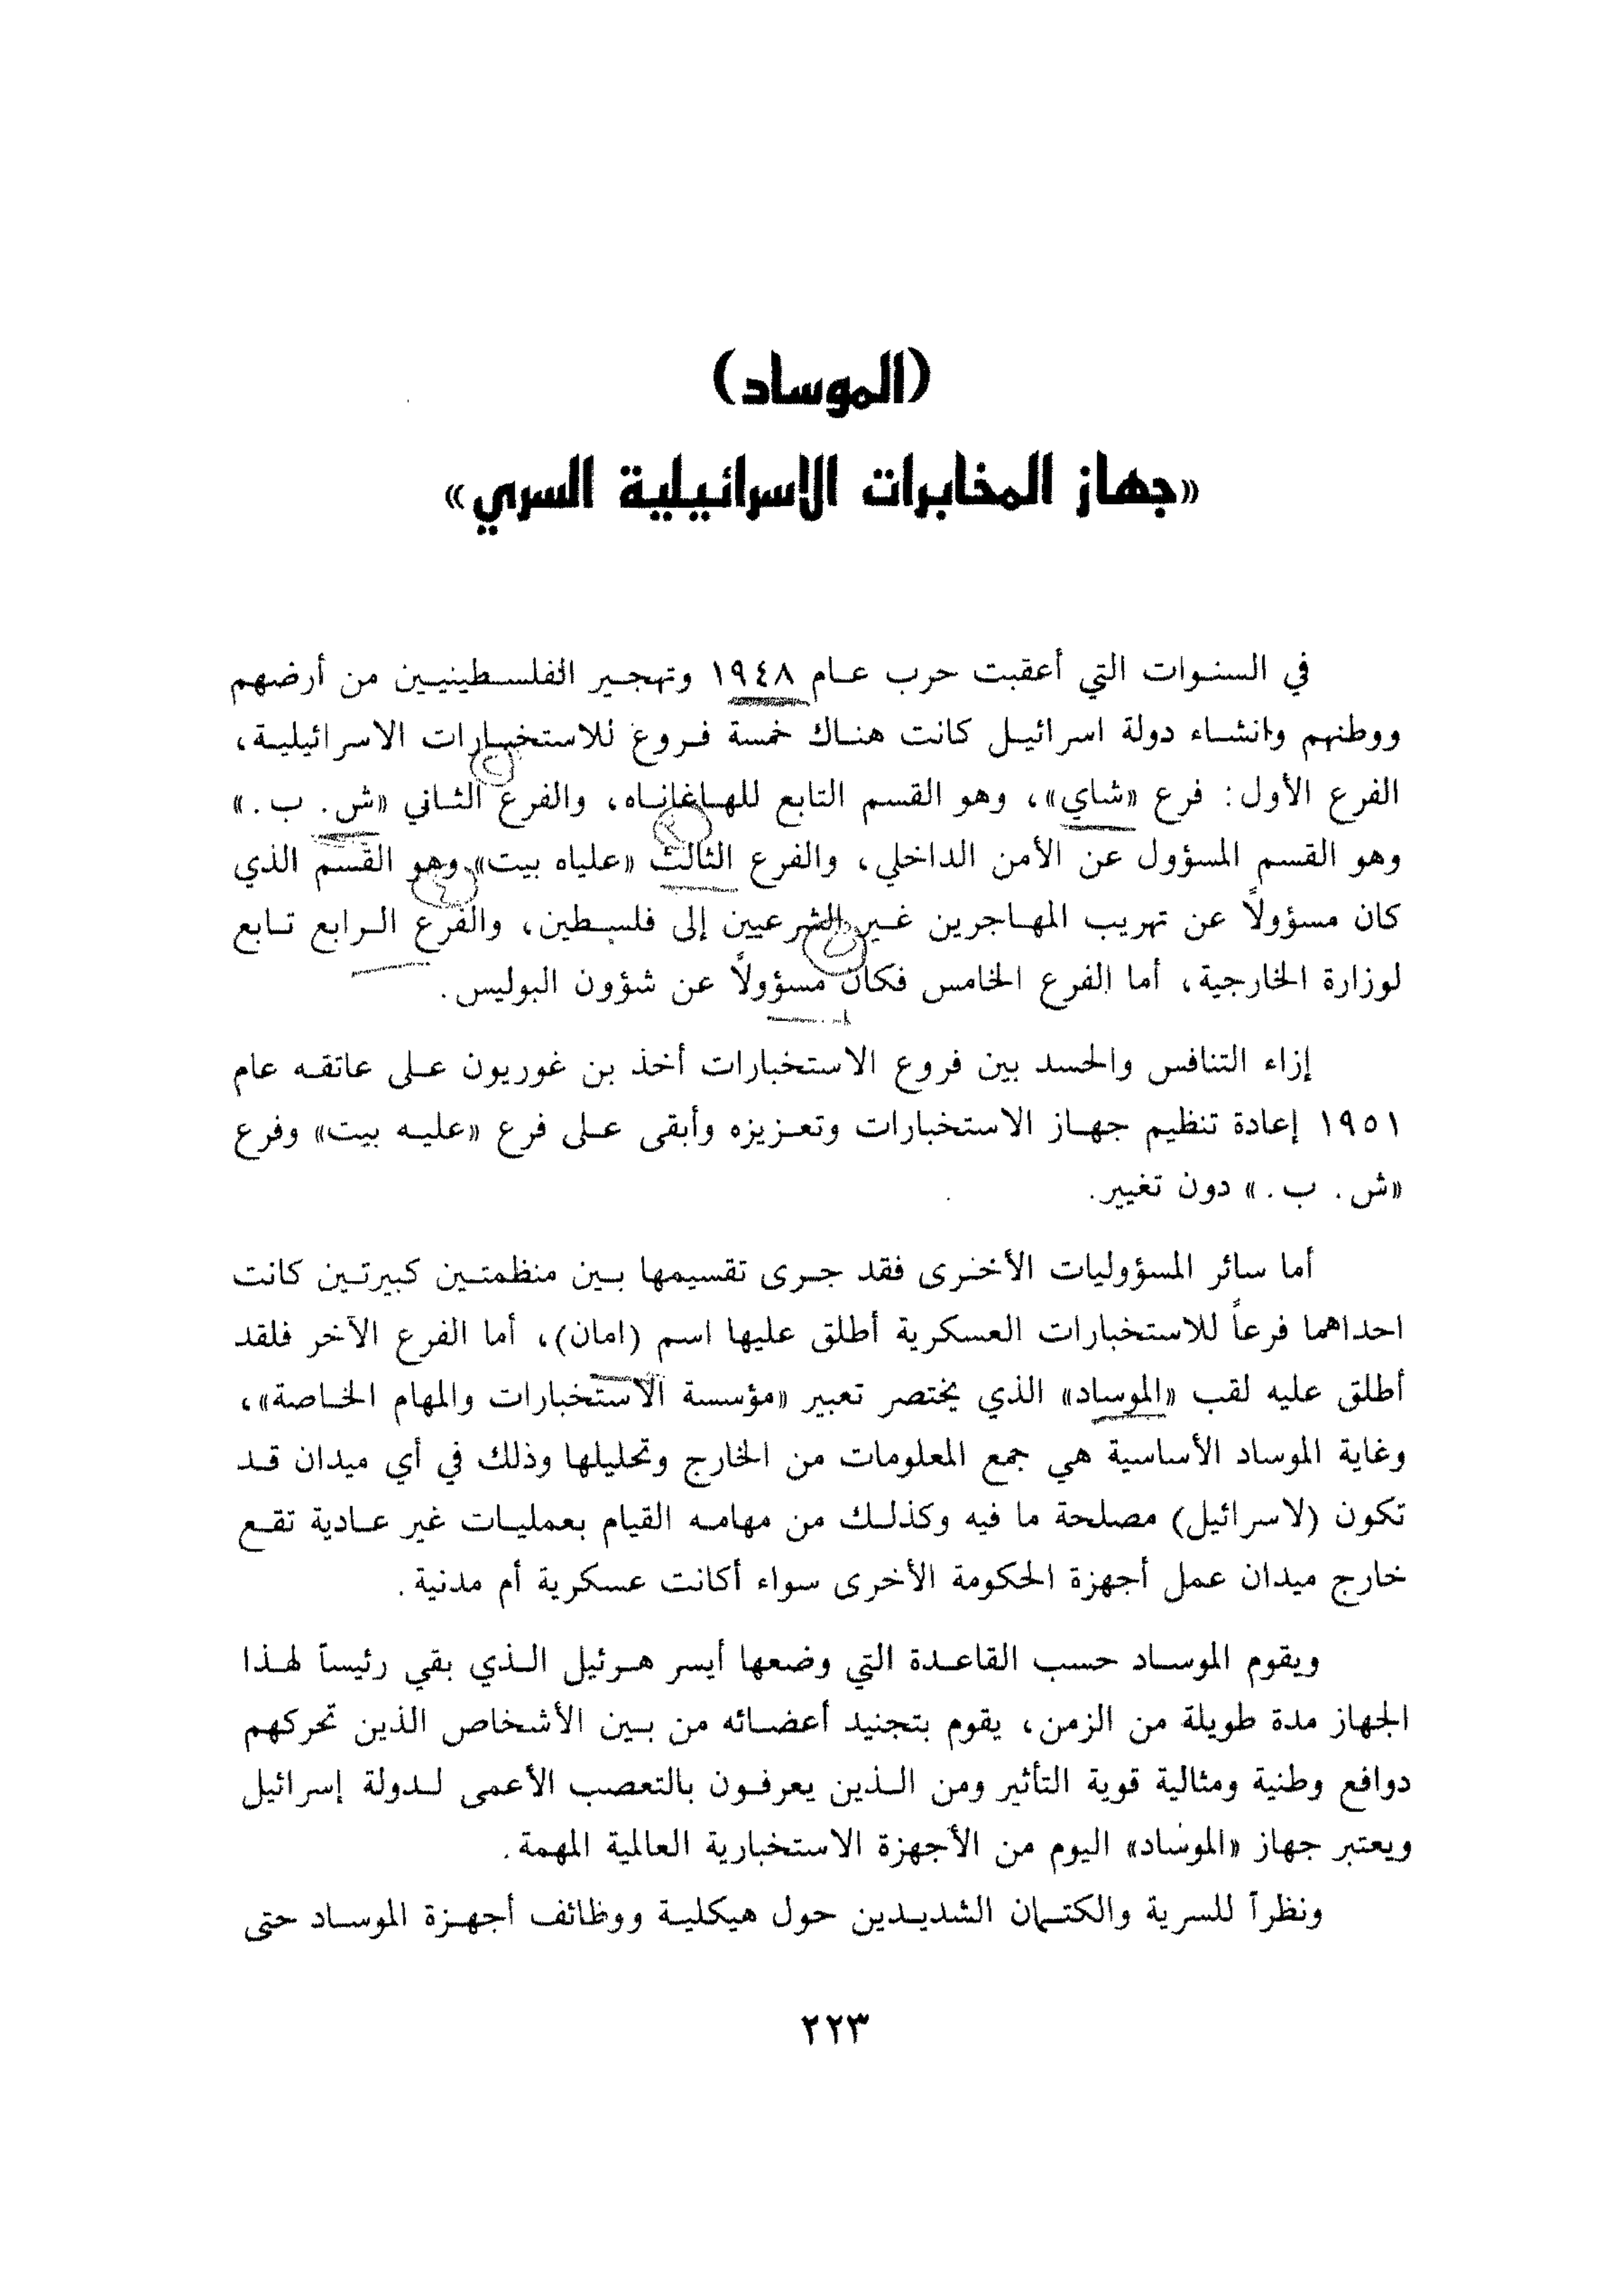 (الموساد)
«جهاز المخابرات الاسرائيلية السري»
في السنوات التي أعقبت حرب عام ١٩٤٨ وتهجير الفلسطينيين من أرضهم
ووطنهم وانشاء دولة اسرائيل كانت هناك خمسة فروع للاستخبارات الاسرائيلية،
الفرع الأول: فرع «شاي»، وهو القسم التابع للهاغاناه، والفرع الثاني «ش. ب.»
وهو القسم المسؤول عن الأمن الداخلي، والفرع الثالث «علياه بيت» وهو القسم الذي
كان مسؤولاً عن تهريب المهاجرين غير الشرعيين إلى فلسطين، والفرع الرابع تابع
لوزارة الخارجية، أما الفرع الخامس فكان مسؤولاً عن شؤون البوليس.
إزاء التنافس والحسد بين فروع الاستخبارات أخذ بن غوريون على عاتقه عام
١٩٥١ إعادة تنظيم جهاز الاستخبارات وتعزيزه وأبقى على فرع «عليه بيت» وفرع
«ش. ب.» دون تغيير.
أما سائر المسؤوليات الأخرى فقد جرى تقسيمها بين منظمتين كبيرتين كانت
احداهما فرعاً للاستخبارات العسكرية أطلق عليها اسم (امان)، أما الفرع الآخر فلقد
أطلق عليه لقب «الموساد» الذي يختصر تعبير «مؤسسة الاستخبارات والمهام الخاصة»،
وغاية الموساد الأساسية هي جمع المعلومات من الخارج وتحليلها وذلك في أي ميدان قد
تكون (لاسرائيل) مصلحة ما فيه وكذلك من مهامه القيام بعمليات غير عادية تقع
خارج ميدان عمل أجهزة الحكومة الأخرى سواء أكانت عسكرية أم مدنية.
ويقوم الموساد حسب القاعدة التي وضعها أيسر هرئيل الذي بقي رئيساً لهذا
الجهاز مدة طويلة من الزمن، يقوم بتجنيد أعضائه من بين الأشخاص الذين تحركهم
دوافع وطنية ومثالية قوية التأثير ومن الذين يعرفون بالتعصب الأعمى لدولة إسرائيل
ويعتبر جهاز «الموساد» اليوم من الأجهزة الاستخبارية العالمية المهمة.
ونظراً للسرية والكتمان الشديدين حول هيكلية ووظائف أجهزة الموساد حتى
٢٢٣